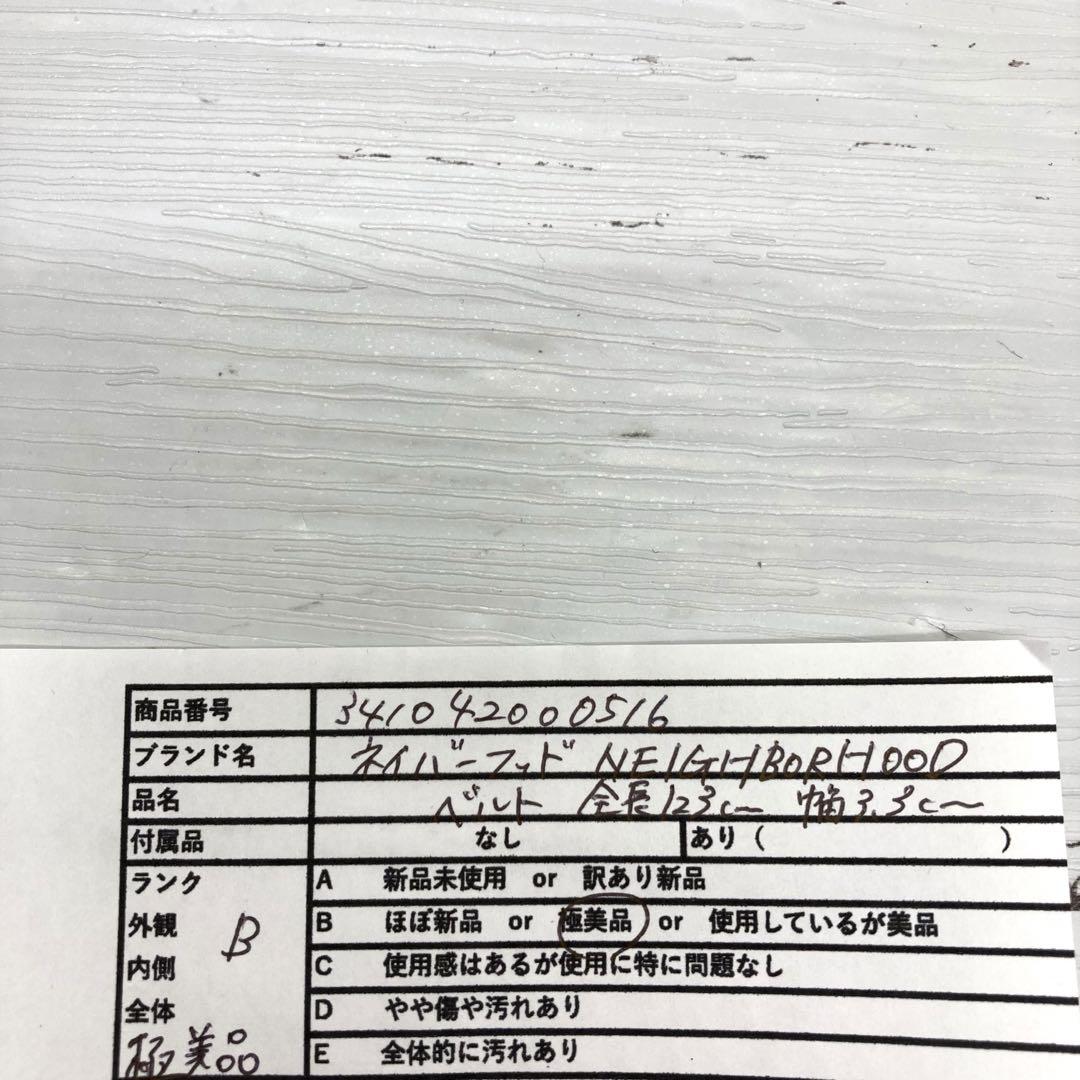 商品番号 3410420000516
ブランド名 ネイバーフッド NEIGHBORHOOD
品名 ベルト 全長123cm 幅3.3cm
付属品 なし あり( )
ランク A 新品未使用 or 訳あり新品
外観 B B ほぼ新品 or 極美品 or 使用しているが美品
内側 C 使用感はあるが使用に特に問題なし
全体 D やや傷や汚れあり
極美品 E 全体的に汚れあり